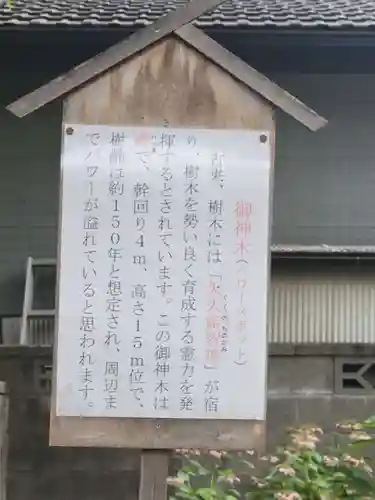 御神木(パワースポット)
古来、樹木には『久久能智神』が宿
り、樹木を勢い良く育成する霊力を発
揮するとされています。この御神木は
で、幹回り4m、高さ15m位で、
樹齢は約150年と想定され、周辺ま
でパワーが溢れていると思われます。